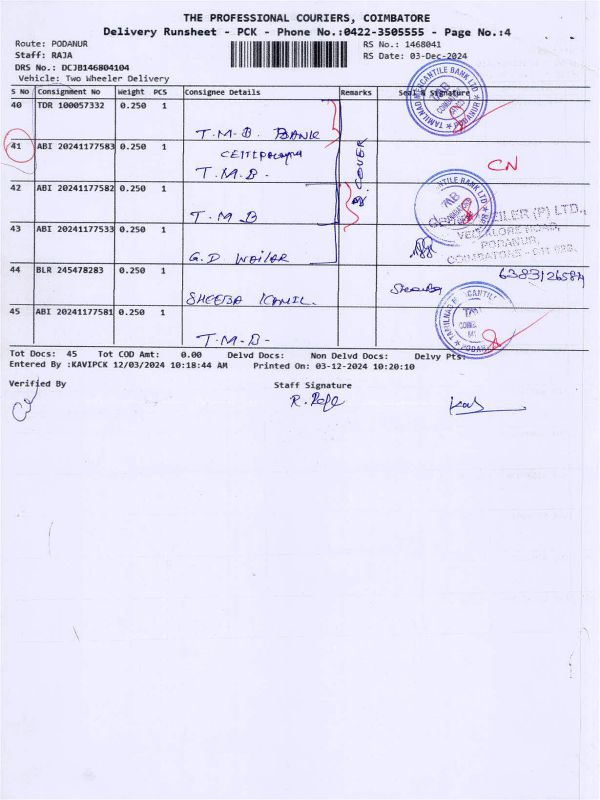 THE PROFESSIONAL COURIERS, COIMBATORE
Delivery Runsheet - PCK - Phone No.:0422-3505555 - Page No.:4
Route: PODANUR
Staff: RAJA
DRS No.: DCJB146804104
Vehicle: Two Wheeler Delivery
RS No.: 1468041
RS Date: 03-Dec-2024
S No Consignment No Weight PCS Consignee Details Remarks Seal & Signature
40 TDR 100057332 0.250 1 T.M.B. BANK
41 ABI 20241177583 0.250 1 T.M.B.
CN
42 ABI 20241177582 0.250 1 T.M.B
COVER
43 ABI 20241177533 0.250 1 G.D WAILAR
44 BLR 245478283 0.250 1 SHEEBA KAMIL.
6383126584
45 ABI 20241177581 0.250 1 T.M.B-
TAMILNAD MERCANTILE BANK LTD
PODANUR
PODANUR,
Tot Docs: 45 Tot COD Amt: 0.00 Delvd Docs: Non Delvd Docs: Delvy Pts:
Entered By :KAVIPCK 12/03/2024 10:18:44 AM Printed On: 03-12-2024 10:20:10
Verified By Staff Signature